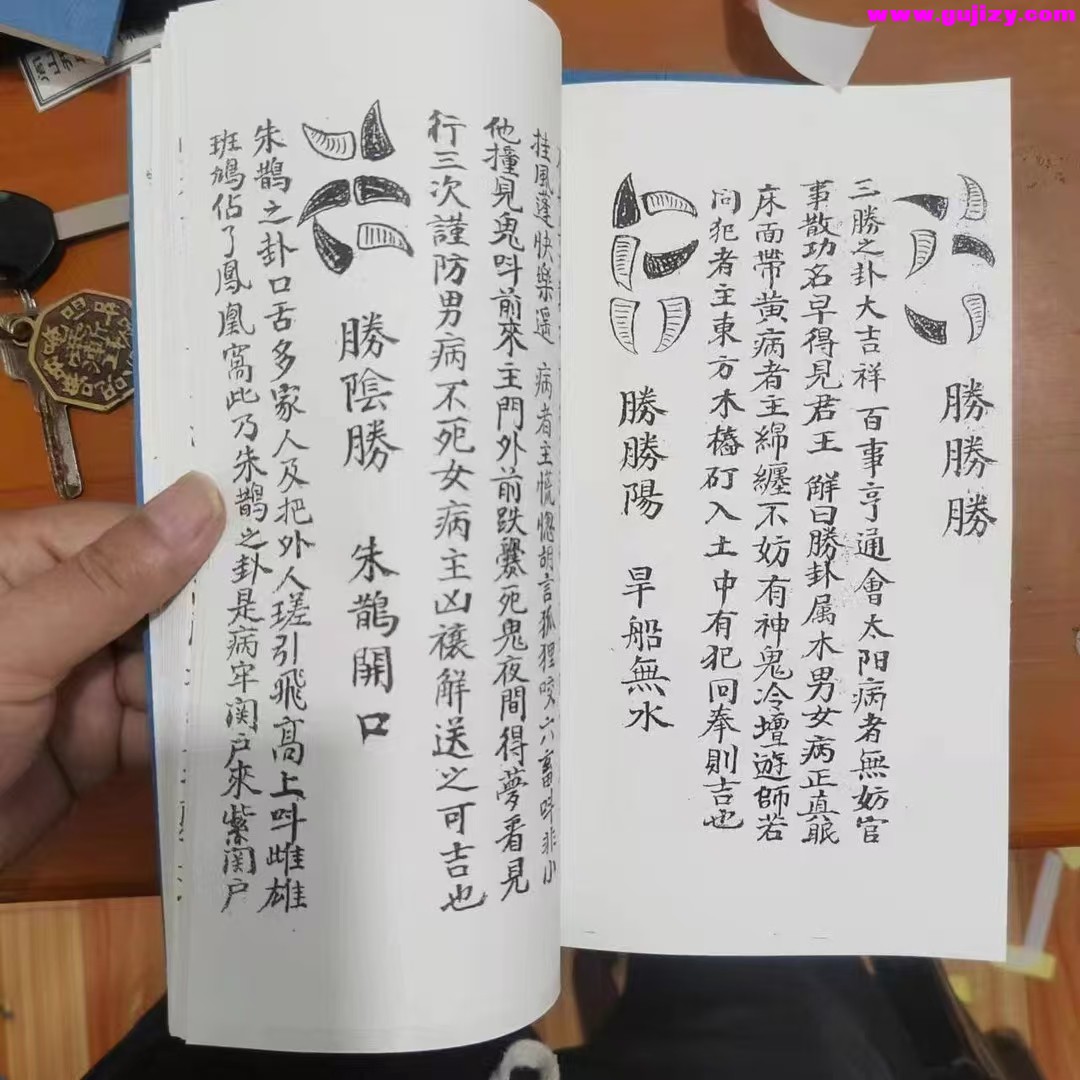 www.gujizy.com
勝勝勝
三勝之卦大吉祥 百事亨通會太阳病者無妨官
事散功名早得見君王 解曰勝卦属水男女病正真眠
床面帶黄病者主綿纏不妨有神鬼冷壇遊師若
向犯者主東方木樁矴入土中有犯回奉則吉也
勝勝陽 旱船無水
挂風逢快樂遥 病者主慌惚胡言狐狸咬六畜呌非小
他撞見鬼呌前來主門外前跌斃死鬼夜間得夢看見
行三次謹防男病不死女病主凶禳解送之可吉也
勝陰勝 朱鵲開口
朱鵲之卦口舌多家人及把外人瑳引飛高上呌雌雄
班鳩佔了鳳凰窩此乃朱鵲之卦是病牢関戶來紫関户